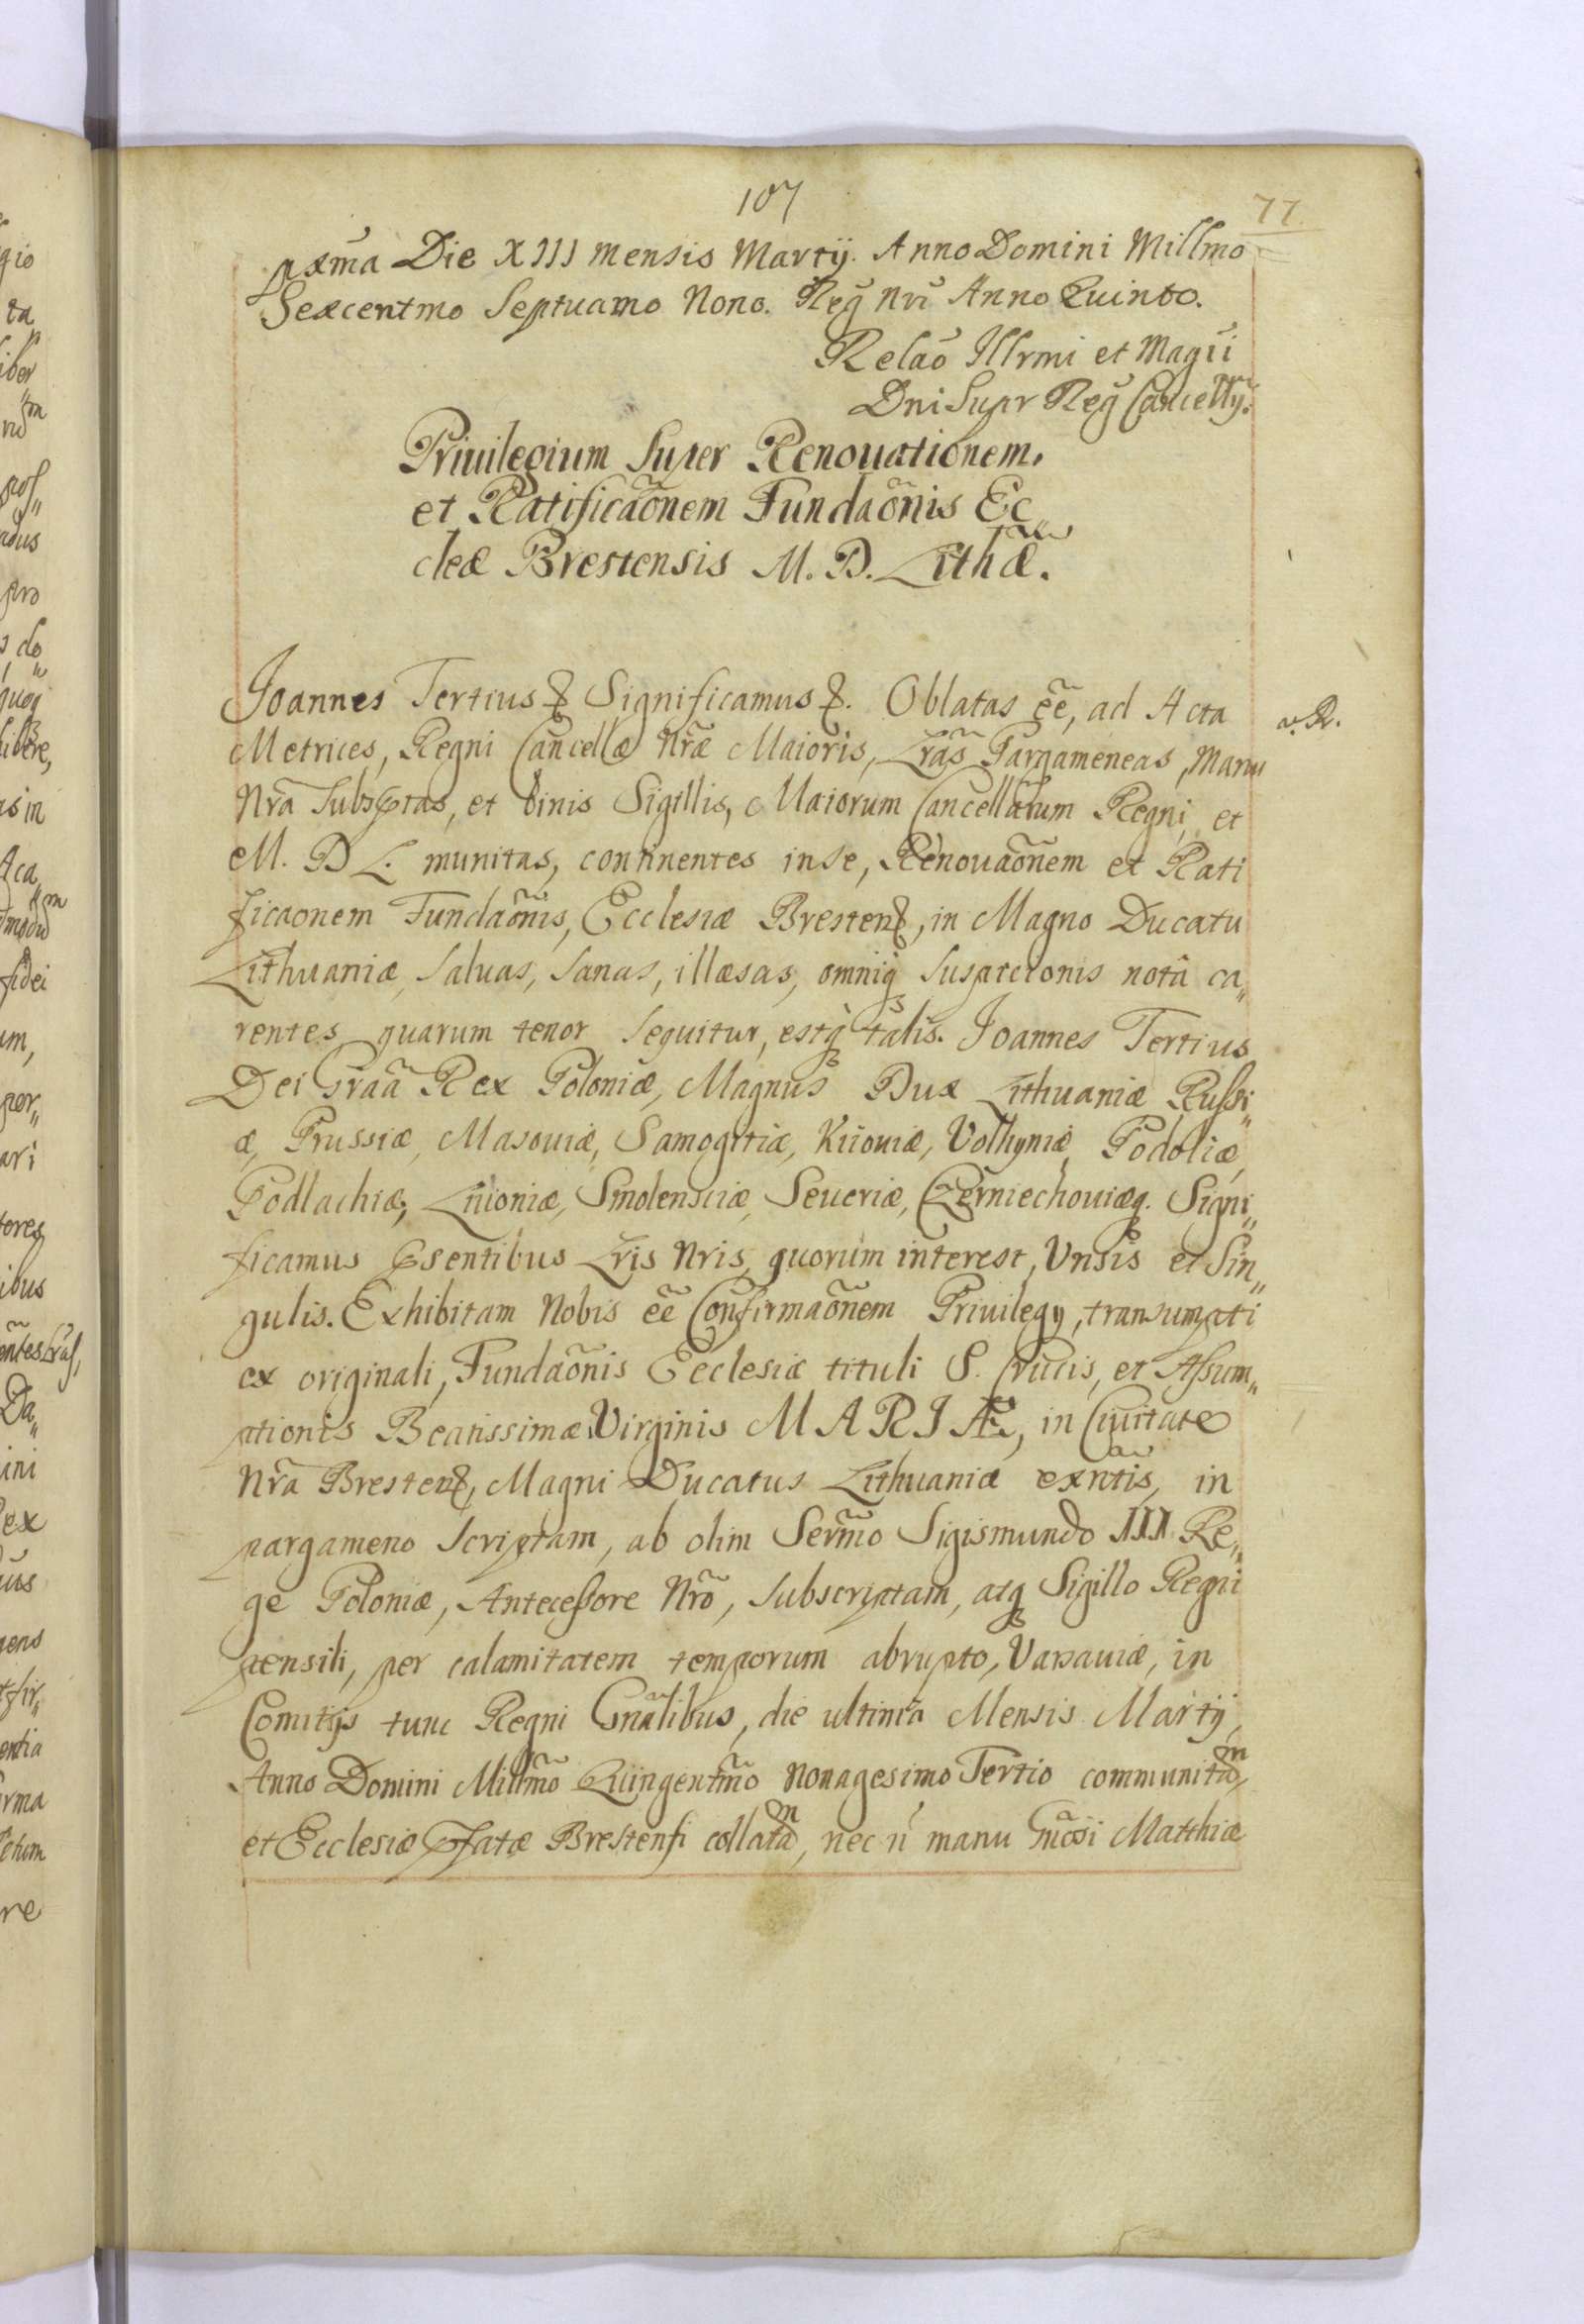 107
77
pxm̃a Die XIII mensis Martij. Anno Domini Millmo
Sexcentmo Septuamo Nono. Reg̃ Nrĩ Anno Quinto.
Relaõ Illrmi et Magñi
Dni Supr Reg̃ Cancellrÿ.
Priuilegium Super Renouationem,
et Ratificaõnem Fundaõnis Ec„
cleæ Brestensis M. D. Lithæ̃.
Joannes Tertius ꝛ Significamus ꝛ. Oblatas eẽ, ad Acta
v. R.
Metrices, Regni Cancellæ Nræ̃ Maioris, Lrãs Pargameneas, Manu
Nrã Subscptas, et binis Sigillis, Maiorum Cancellarum Regni, et
M. D L. munitas, continentes in se, Renouaõnem et Rati
ficaonem Fundaõnis, Ecclesiæ Brestenꝭ, in Magno Ducatu
Lithuaniæ, Saluas, Sanas, illæsas, omniqꝫ Suspicionis notâ ca„
rentes, quarum tenor Sequitur, estqꝫ talis. Joannes Tertius
Dei Graã Rex Poloniæ, Magnus Dux Lithuaniæ, Russi„
æ, Prussiæ, Masouiæ, Samogitiæ, Kijouiæ, Volhyniæ, Podoliæ,
Podlachiæ, Liuoniæ, Smolensciæ, Seueriæ, Czerniechouiæqꝫ. Signi„
ficamus Psentibus Lris Nris, quorum interest, Vnsis et Sin„
gulis. Exhibitam Nobis eẽ Confirmaõnem Priuilegij, transumpti
ex originali, Fundaõnis Ecclesiæ tituli S. Crucis, et Assum„
ptionis Beatissimæ Virginis MARIÆ, in Ciuitate
Nrã Brestenꝭ, Magni Ducatus Lithuaniæ exntĩs, in
pargameno Scriptam, ab olim Serm̃o Sigismundo III Re„
ge Poloniæ, Antecessore Nrõ, Subscriptam, atqꝫ Sigillo Regni
pensili, per calamitatem temporum abrupto, Varsauiæ, in
Comitijs tunc Regni Gnãlibus, die ultima Mensis Martij,
Anno Domini Millm̃o Quingentm̃o Nonagesimo Tertio communitam,
et Ecclesiæ Pfatæ Brestensi collatam, nec ñ manu Gñosi Matthiæ